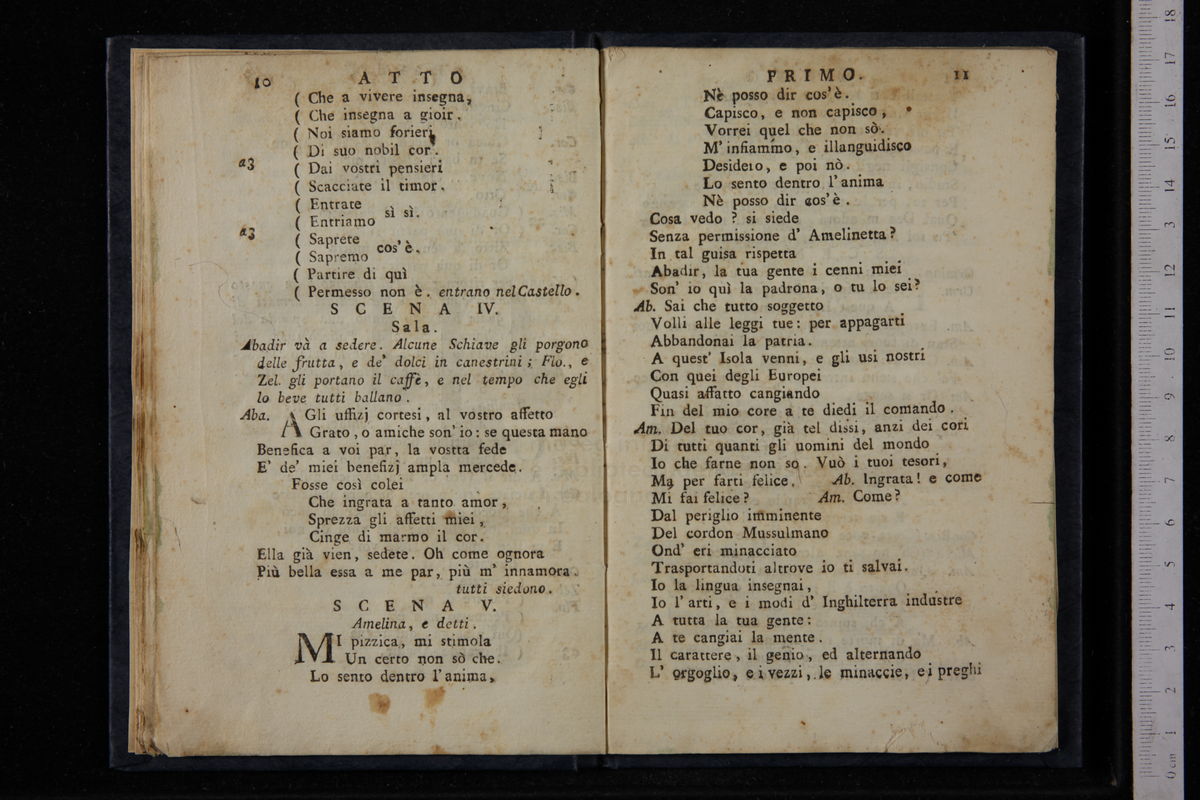 10 ATTO
( Che a vivere insegna,
( Che insegna a gioir.
( Noi siamo forieri
( Di suo nobil cor.
a3 ( Dai vostri pensieri
( Scacciate il timor.
( Entrate
( Entriamo sì sì.
a3 ( Saprete
( Sapremo cos'è.
( Partire di quì
( Permesso non è. entrano nel Castello.
SCENA IV.
Sala.
Abadir và a sedere. Alcune Schiave gli porgono
delle frutta, e de' dolci in canestrini; Flo., e
Zel. gli portano il caffè, e nel tempo che egli
lo beve tutti ballano.
Aba. A Gli uffizj cortesi, al vostro affetto
Grato, o amiche son' io: se questa mano
Benefica a voi par, la vostta fede
E' de' miei benefizj ampla mercede.
Fosse così colei
Che ingrata a tanto amor,
Sprezza gli affetti miei,
Cinge di marmo il cor.
Ella già vien, sedete. Oh come ognora
Più bella essa a me par, più m' innamora.
tutti siedono.
SCENA V.
Amelina, e detti.
MI pizzica, mi stimola
Un certo non sò che.
Lo sento dentro l'anima,
PRIMO. 11
Nè posso dir cos'è.
Capisco, e non capisco,
Vorrei quel che non sò.
M' infiammo, e illanguidisco
Desideio, e poi nò.
Lo sento dentro l'anima
Nè posso dir cos'è.
Cosa vedo? si siede
Senza permissione d' Amelinetta?
In tal guisa rispetta
Abadir, la tua gente i cenni miei
Son' io quì la padrona, o tu lo sei?
Ab. Sai che tutto soggetto
Volli alle leggi tue: per appagarti
Abbandonai la patria.
A quest' Isola venni, e gli usi nostri
Con quei degli Europei
Quasi affatto cangiando
Fin del mio core a te diedi il comando.
Am. Del tuo cor, già tel dissi, anzi dei cori
Di tutti quanti gli uomini del mondo
Io che farne non so. Vuò i tuoi tesori,
Ma per farti felice. Ab. Ingrata! e come
Mi fai felice? Am. Come?
Dal periglio imminente
Del cordon Mussulmano
Ond' eri minacciato
Trasportandoti altrove io ti salvai.
Io la lingua insegnai,
Io l'arti, e i modi d' Inghilterra industre
A tutta la tua gente:
A te cangiai la mente.
Il carattere, il genio, ed alternando
L' orgoglio, e i vezzi, le minaccie, e i preghi